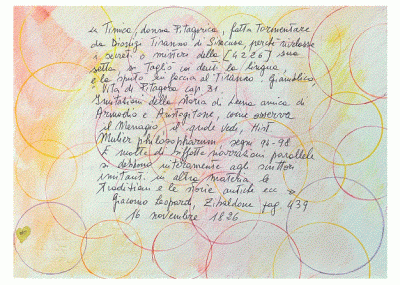 di Timica, donna Pitagorica, fatta tormentare
da Dionigi Tiranno di Siracusa, perché rivelasse
i secreti o misteri della [4226] sua
setta, si tagliò co' denti la lingua
e la sputò in faccia al Tiranno. Giamblico,
Vita di Pitagora cap. 31.
Imitazioni della storia di Leena amica di
Armodio e Aristogitone, come osserva
il Menagio, il quale vedi, Hist.
Mulier. philosopharum. segm. 94-98
E molte di siffatte narrazioni parallele
si debbono interamente agli scrittori
imitant. in altra materia le
tradizioni e le storie antiche ec.
Giacomo Leopardi, Zibaldone pag. 439
16 novembre 1826